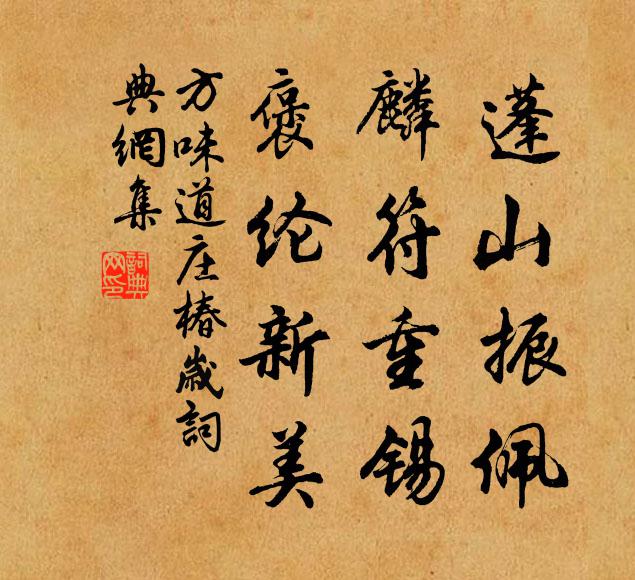 蓬山振佩
麟符重锡
褒纶新美
方味道庄椿岁詞
典網集
詞典网印